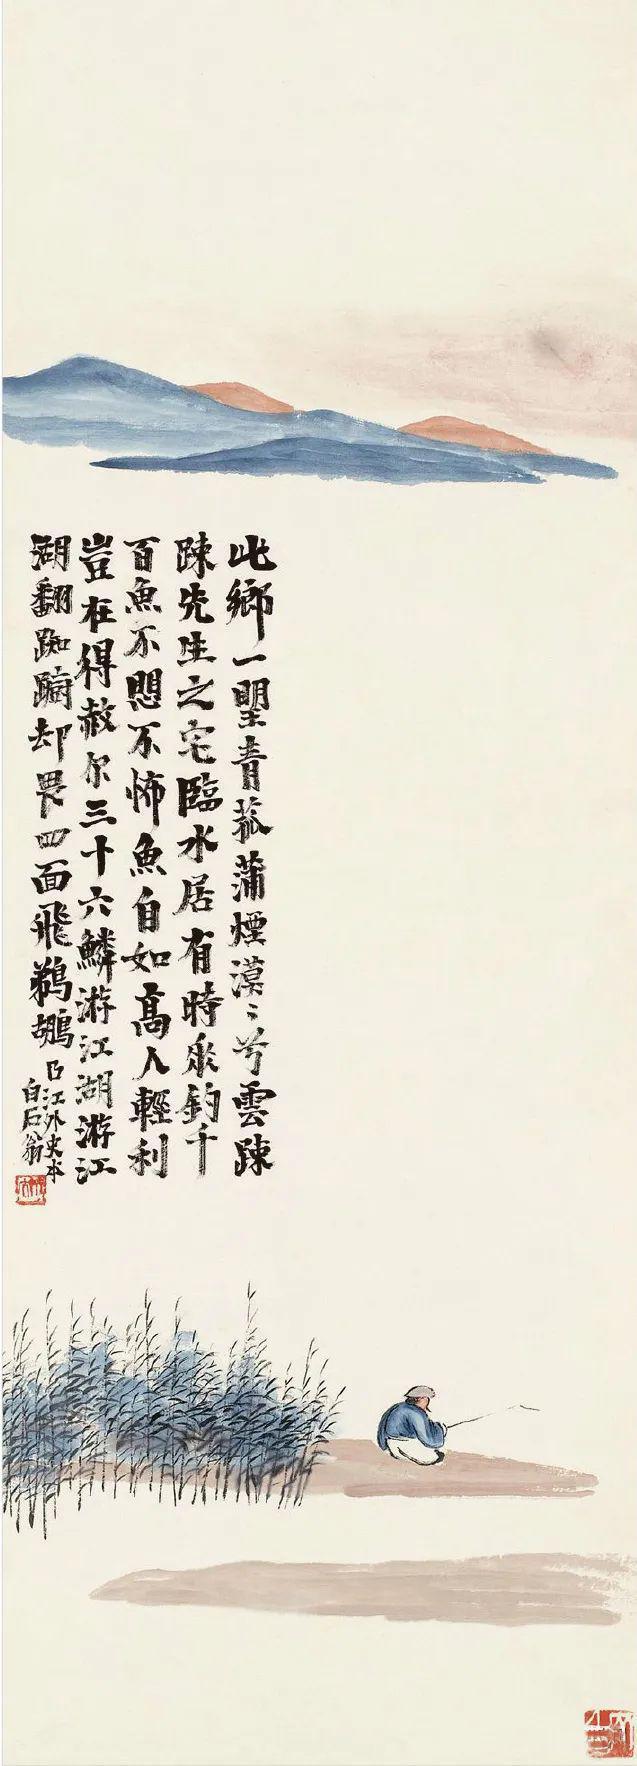 此鄉一朢青菰蒲煙漠〻兮雲踈
踈先生之宅臨水居有時垂釣千
百魚不愳不怖魚自如高人輕利
豈在得赦尔三十六鱗游江湖游江
湖翻踟躕却畏四面飛鵜鶘
江外史本
白石翁